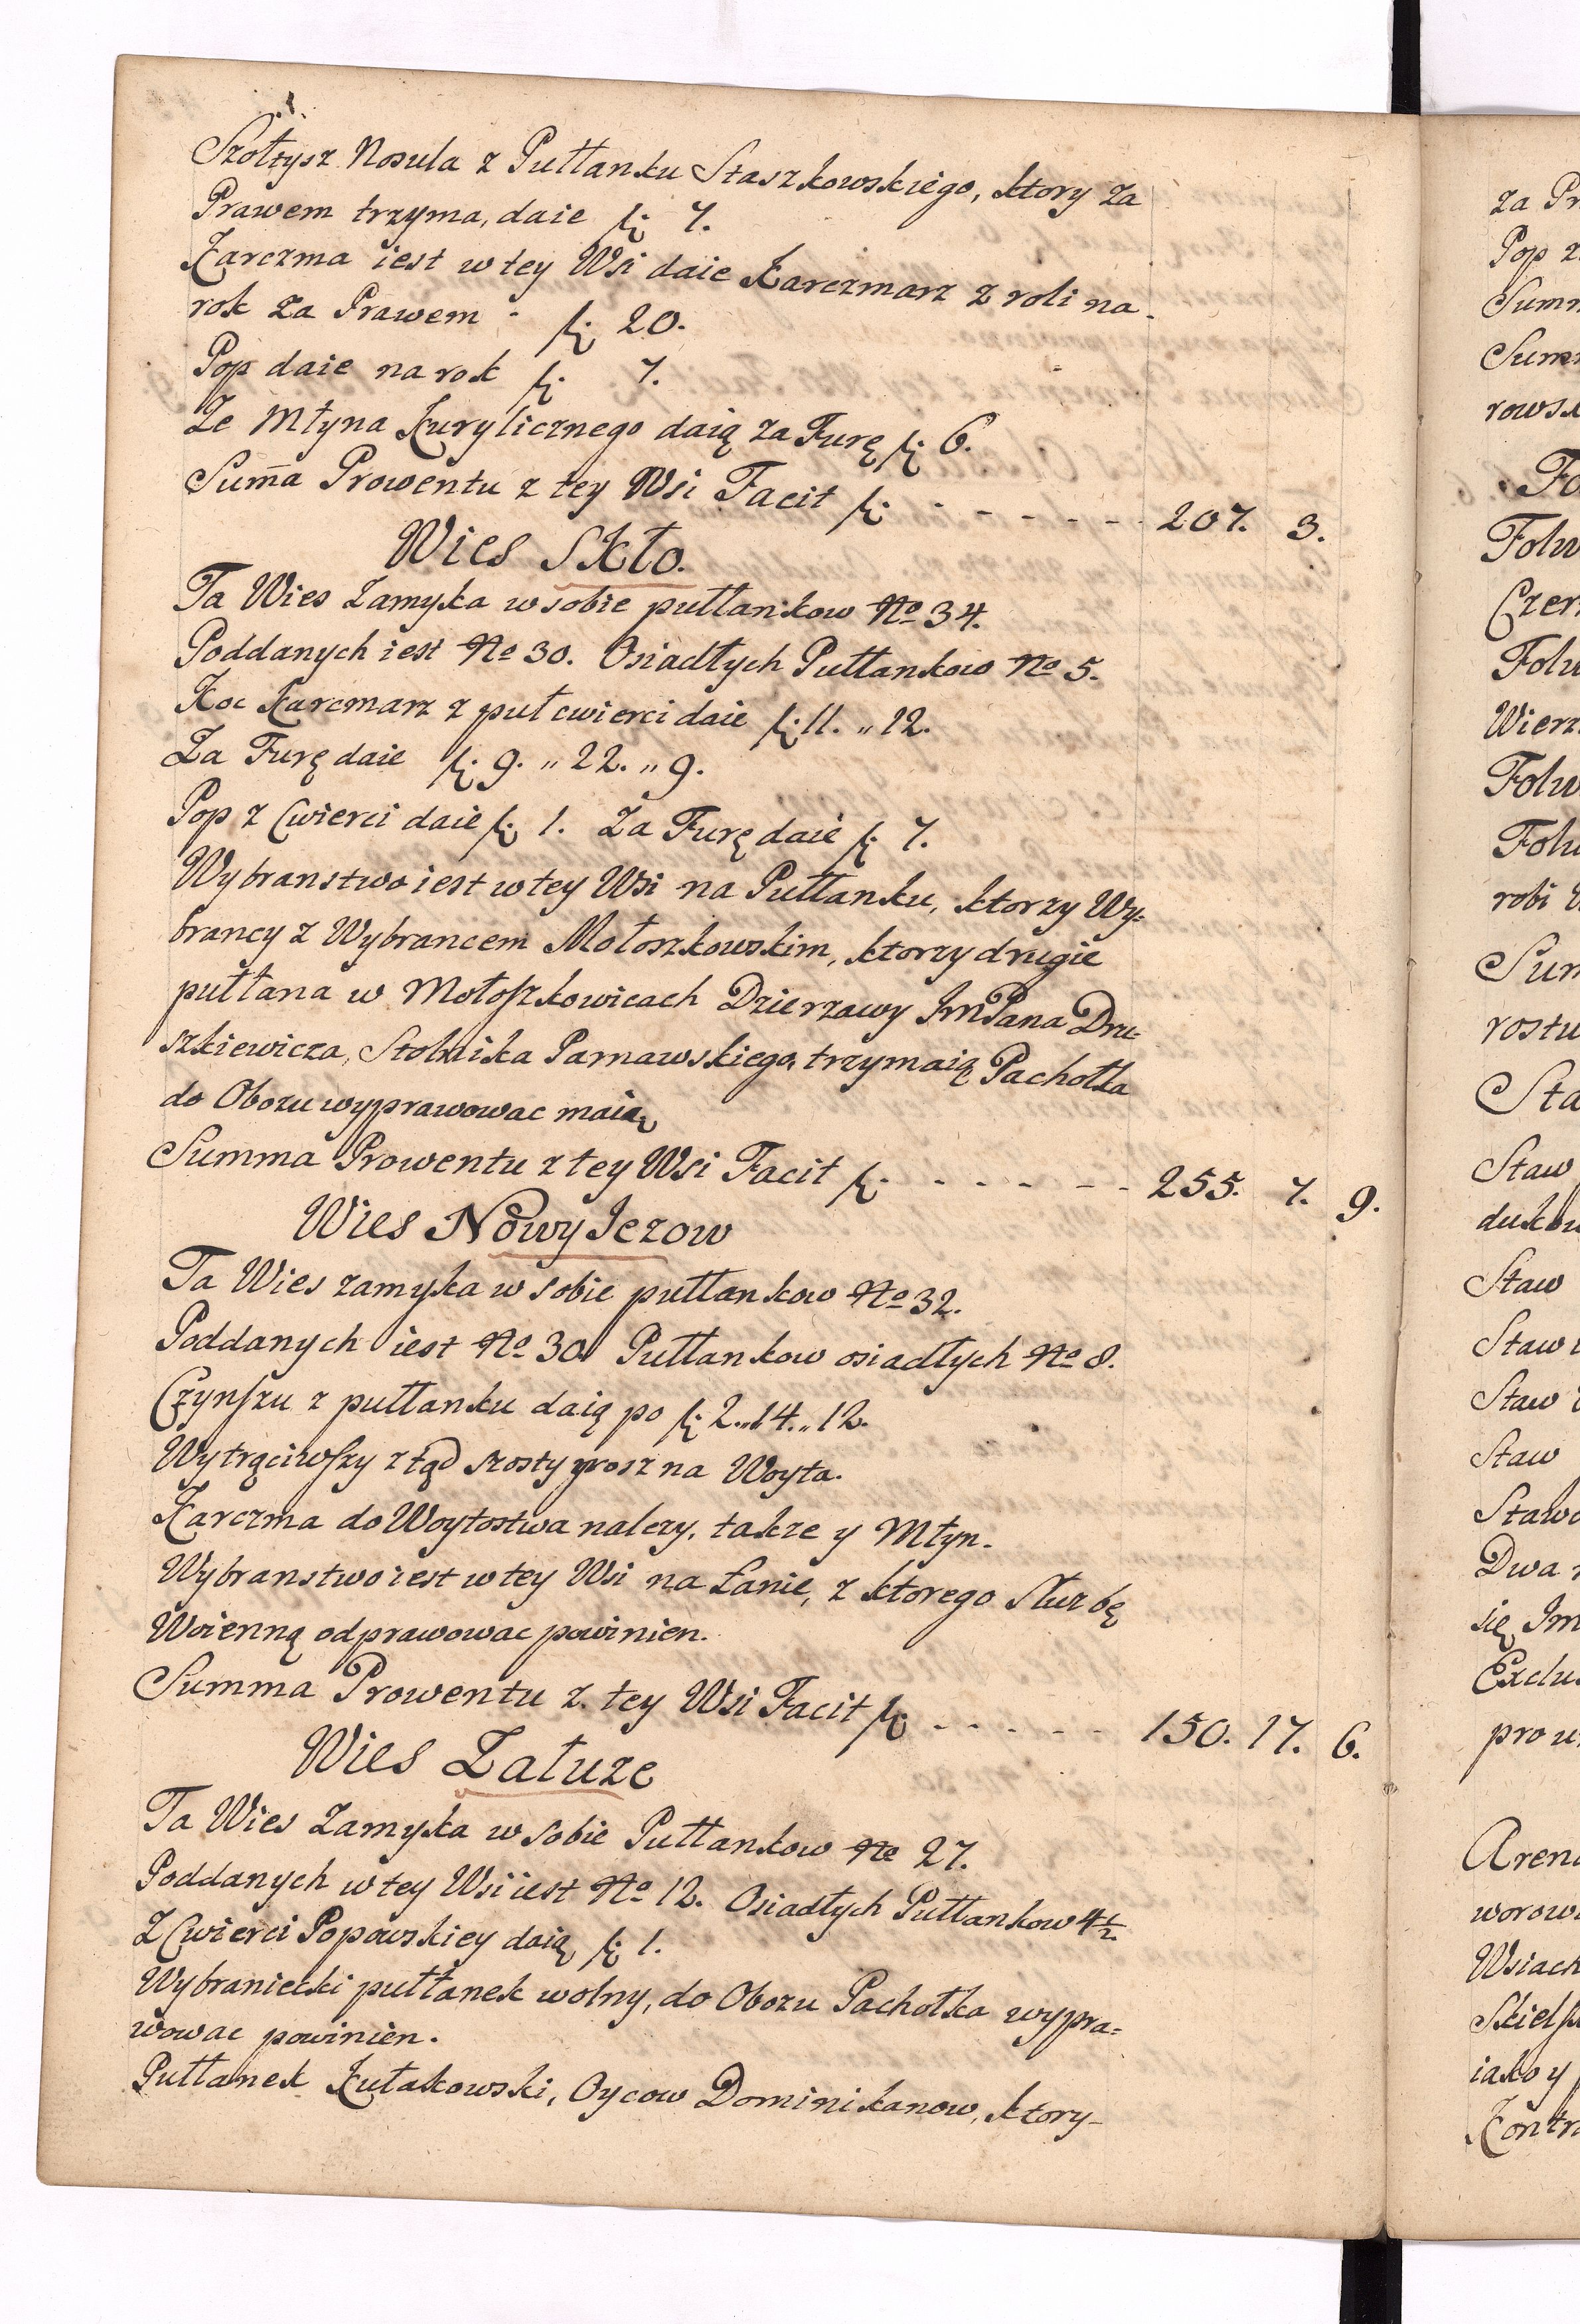 Szołtysz Nosula z Pułłanku Staszkowskiego, ktory za
Prawem trzyma, daie fl: 7.
Karczma iest w tey Wsi daie Karczmarz z roli na-
rok za Prawem - fl: 20.
Pop daie na rok fl: 7.
Ze Młyna Kurylicznego daią za Furę fl: 6.
Sum̄a Prowentu z tey Wsi Facit fl: - - - - - - 207. 3.
Wies Skło.
Ta Wies Zamyka w sobie pułłankow No 34.
Poddanych iest No 30. Osiadłych Pułłankow No 5.
Koc Karcmarz z puł cwierci daie fl: 11. „ 12.
Za Furę daie fl: 9. „ 22. „ 9.
Pop z Cwierci daie fl: 1. Za Furę daie fl: 7.
Wybranstwo iest w tey Wsi na Pułłanku, ktorzy Wy-
brancy z Wybrancem Mołoszkowskim, ktorzy drugie
pułłana w Mołoszkowicach Dzierzawy JmPana Dru-
szkiewicza, Stolnika Parnawskiego, trzymaią Pachołka
do Obozu wyprawowac maią
Summa Prowentu z tey Wsi Facit fl: - - - - - 255. 7. 9.
Wies Nowy Jezow
Ta Wies zamyka w sobie pułłankow No 32.
Poddanych iest No 30. Pułłankow osiadłych No 8.
Czynszu z pułłanku daią po fl: 2. „ 14. „ 12.
Wytrąciwszy z tąd szosty grosz na Woyta.
Karczma do Woytostwa nalezy, takze y Młyn.
Wybranstwo iest w tey Wsi na Łanie, z ktorego Słuzbę
Woienną odprawowac powinien.
Summa Prowentu z tey Wsi Facit fl: - - - - - 150. 17. 6.
Wies Załuze
Ta Wies Zamyka w sobie Pułłankow No 27.
Poddanych w tey Wsi iest No 12. Osiadłych Pułłankow 4½.
Z Cwierci Popowskiey daią fl: 1.
Wybraniecki pułłanek wolny, do Obozu Pachołka wypra=
wowac powinien.
Pułłanek Kułakowski, Oycow Dominikanow, ktory-
za Pr
Pop z
Sum
Sum
rowsk
Fo
Folw
Czer
Folw
Wierz
Folw
Folw
robi
Sum
rostu
Sta
Staw
dukow
Staw
Staw
Staw
Staw
Stawo
Dwa
się Im
Exclu
pro u
Aren
worow
Wsiach
Skielsk
iako y
Kontr